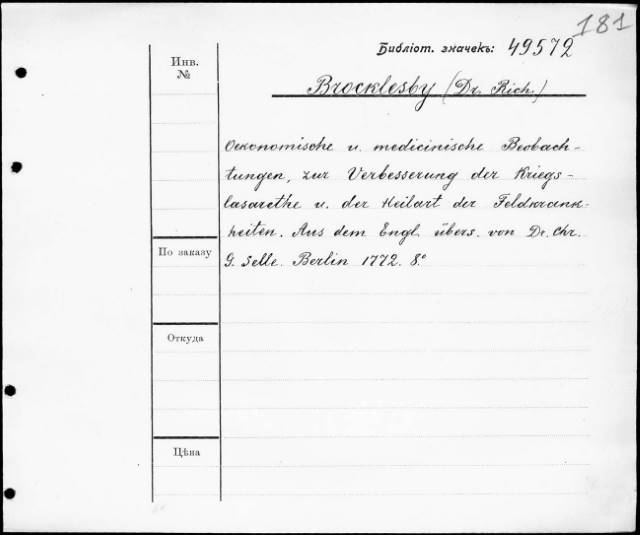 181
Библіот. значекъ: 49572
Инв.
№
Brocklesby (Dr. Rich.)
Oekonomische u. medicinische Beobach-
tungen, zur Verbesserung der Kriegs-
lasarethe u. der Heilart der Feldkrank-
heiten. Aus dem Engl. übers. von Dr. Chr.
G. Selle. Berlin 1772. 8.°
По заказу
Откуда
Цѣна